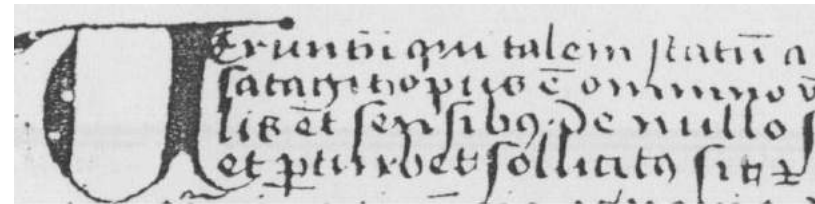 Ueruntn̄ qui talem statū a
satagit opus ē omnino v̄
lis ēt sensibꝫ. De nullo s
et ꝑturbet sollicitꝰ sit ⁊